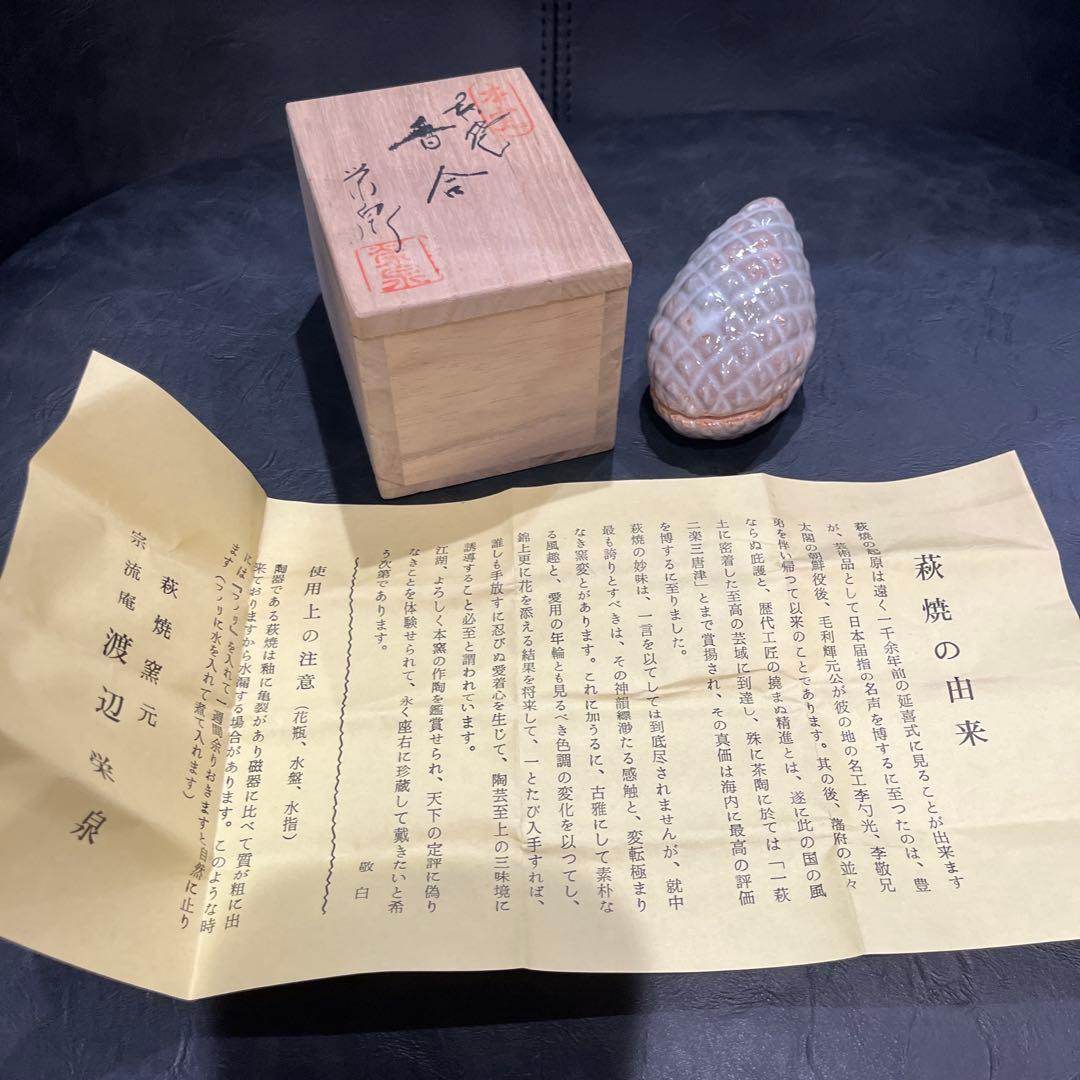 萩焼
香合
栄泉
栄泉
萩焼の由来
萩焼の起原は遠く一千余年前の延喜式に見ることが出来ます
が、芸術品として日本屈指の名声を博するに至つたのは、豊
太閤の朝鮮役後、毛利輝元公が彼の地の名工李勺光、李敬兄
弟を伴い帰つて以来のことであります。其の後、藩府の並々
ならぬ庇護と、歴代工匠の撓まぬ精進とは、遂に此の国の風
土に密着した至高の芸域に到達し、殊に茶陶に於ては「一萩
二楽三唐津」とまで賞揚され、その真価は海内に最高の評価
を博するに至りました。
萩焼の妙味は、一言を以てしては到底尽されませんが、就中
最も誇りとすべきは、その神韻縹渺たる感触と、変転極まり
なき窯変とがあります。これに加うるに、古雅にして素朴な
る風趣と、愛用の年輪とも見るべき色調の変化を以つてし、
錦上更に花を添える結果を将来して、一とたび入手すれば、
誰しも手放すに忍びぬ愛着心を生じて、陶芸至上の三昧境に
誘導すること必至と謂われています。
江湖、よろしく本窯の作陶を鑑賞せられ、天下の定評に偽り
なきことを体験せられて、永く座右に珍蔵して戴きたいと希
う次第であります。
敬白
使用上の注意（花瓶、水盤、水指）
陶器である萩焼は釉に亀裂があり磁器に比べて質が粗に出
来ておりますから水漏する場合があります。このような時
には「フノリ」を入れて一週間余りおきますと自然に止り
ます（フノリに水を入れて煮て入れます）
萩焼窯元
宗流庵 渡辺栄泉